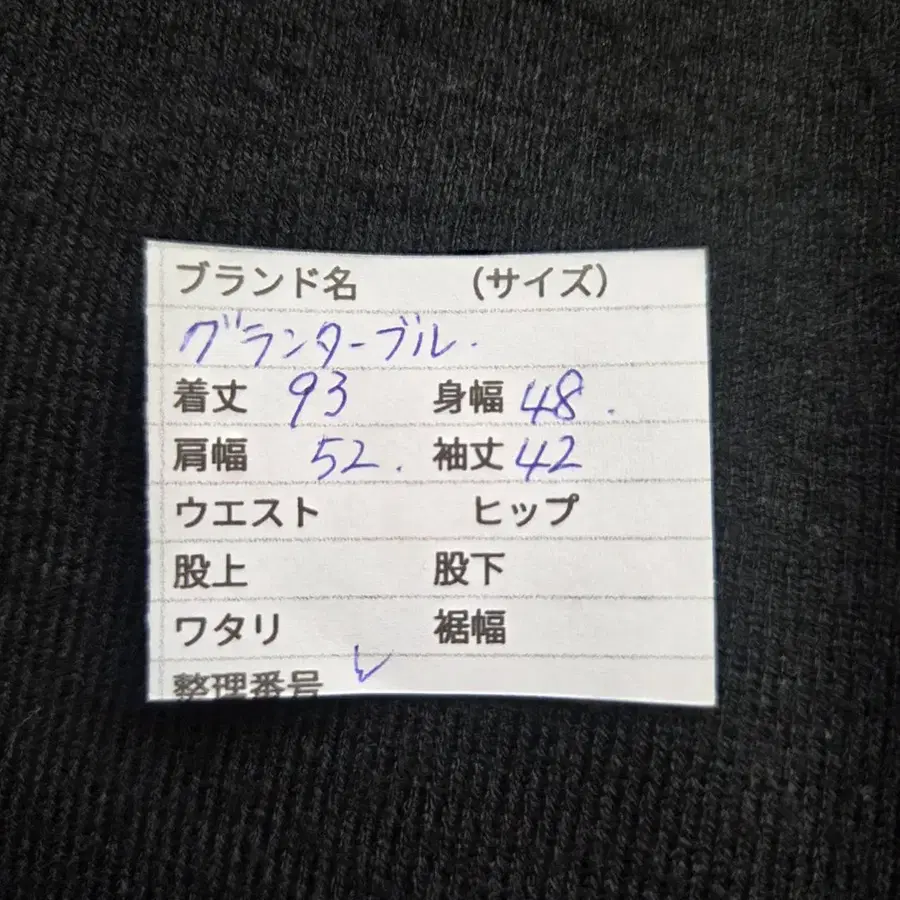 ブランド名 (サイズ)
グランターブル.
着丈 93 身幅 48.
肩幅 52. 袖丈 42
ウエスト ヒップ
股上 股下
ワタリ 裾幅
整理番号